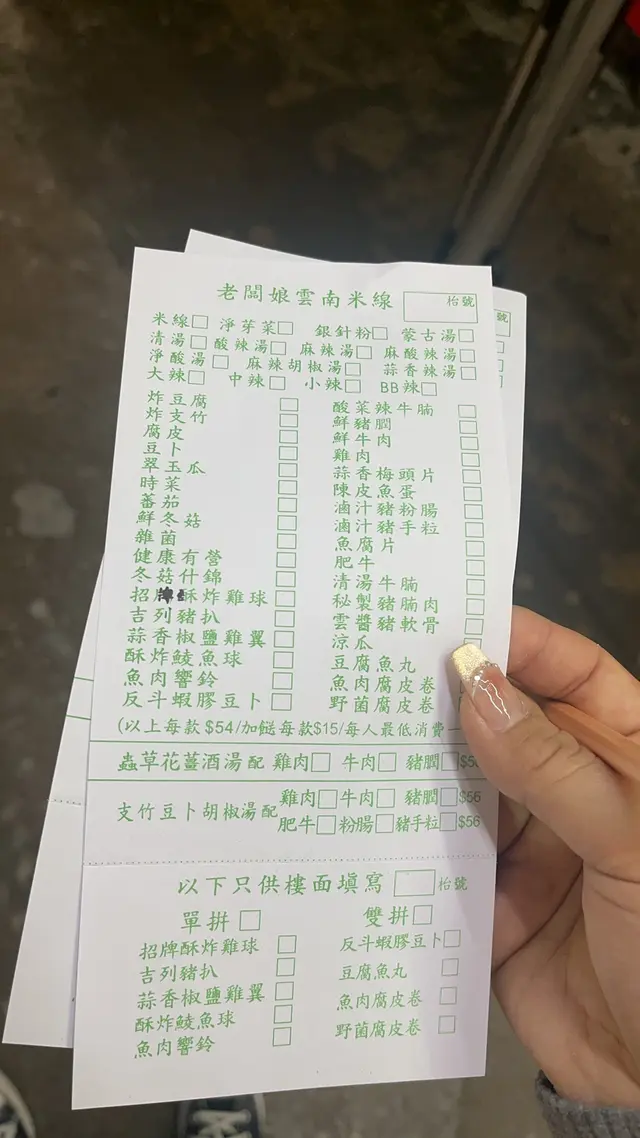 老闆娘雲南米線 枱號
米線 淨芽菜 銀針粉 蒙古湯
清湯 酸辣湯 麻辣湯 麻酸辣湯
淨酸湯 麻辣胡椒湯 蒜香辣湯
大辣 中辣 小辣 BB辣
炸豆腐
炸支竹
腐皮
豆卜
翠玉瓜
時菜
蕃茄
鮮冬菇
雜菌
健康有營
冬菇什錦
招牌酥炸雞球
吉列豬扒
蒜香椒鹽雞翼
酥炸鯪魚球
魚肉響鈴
反斗蝦膠豆卜
酸菜辣牛腩
鮮豬膶
鮮牛肉
雞肉
蒜香梅頭片
陳皮魚蛋
滷汁豬粉腸
滷汁豬手粒
魚腐片
肥牛
清湯牛腩
秘製豬腩肉
雲醬豬軟骨
涼瓜
豆腐魚丸
魚肉腐皮卷
野菌腐皮卷
(以上每款$54/加餸每款$15/每人最低消費一
蟲草花薑酒湯配 雞肉 牛肉 豬膶 $5
支竹豆卜胡椒湯配 雞肉 牛肉 豬膶 $56
肥牛 粉腸 豬手粒 $56
以下只供樓面填寫 枱號
單拼
招牌酥炸雞球
吉列豬扒
蒜香椒鹽雞翼
酥炸鯪魚球
魚肉響鈴
雙拼
反斗蝦膠豆卜
豆腐魚丸
魚肉腐皮卷
野菌腐皮卷
號